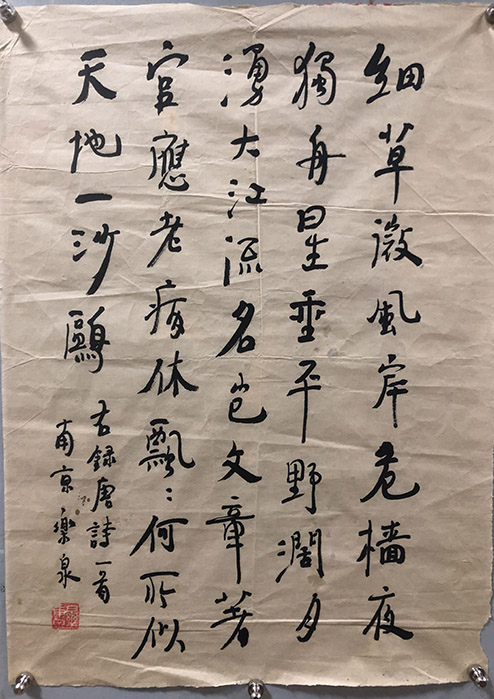 細草微風岸危檣夜
獨舟星垂平野濶月
湧大江流名豈文章著
官應老病休飄〻何所似
天地一沙鷗
右録唐詩一首
南京樂泉